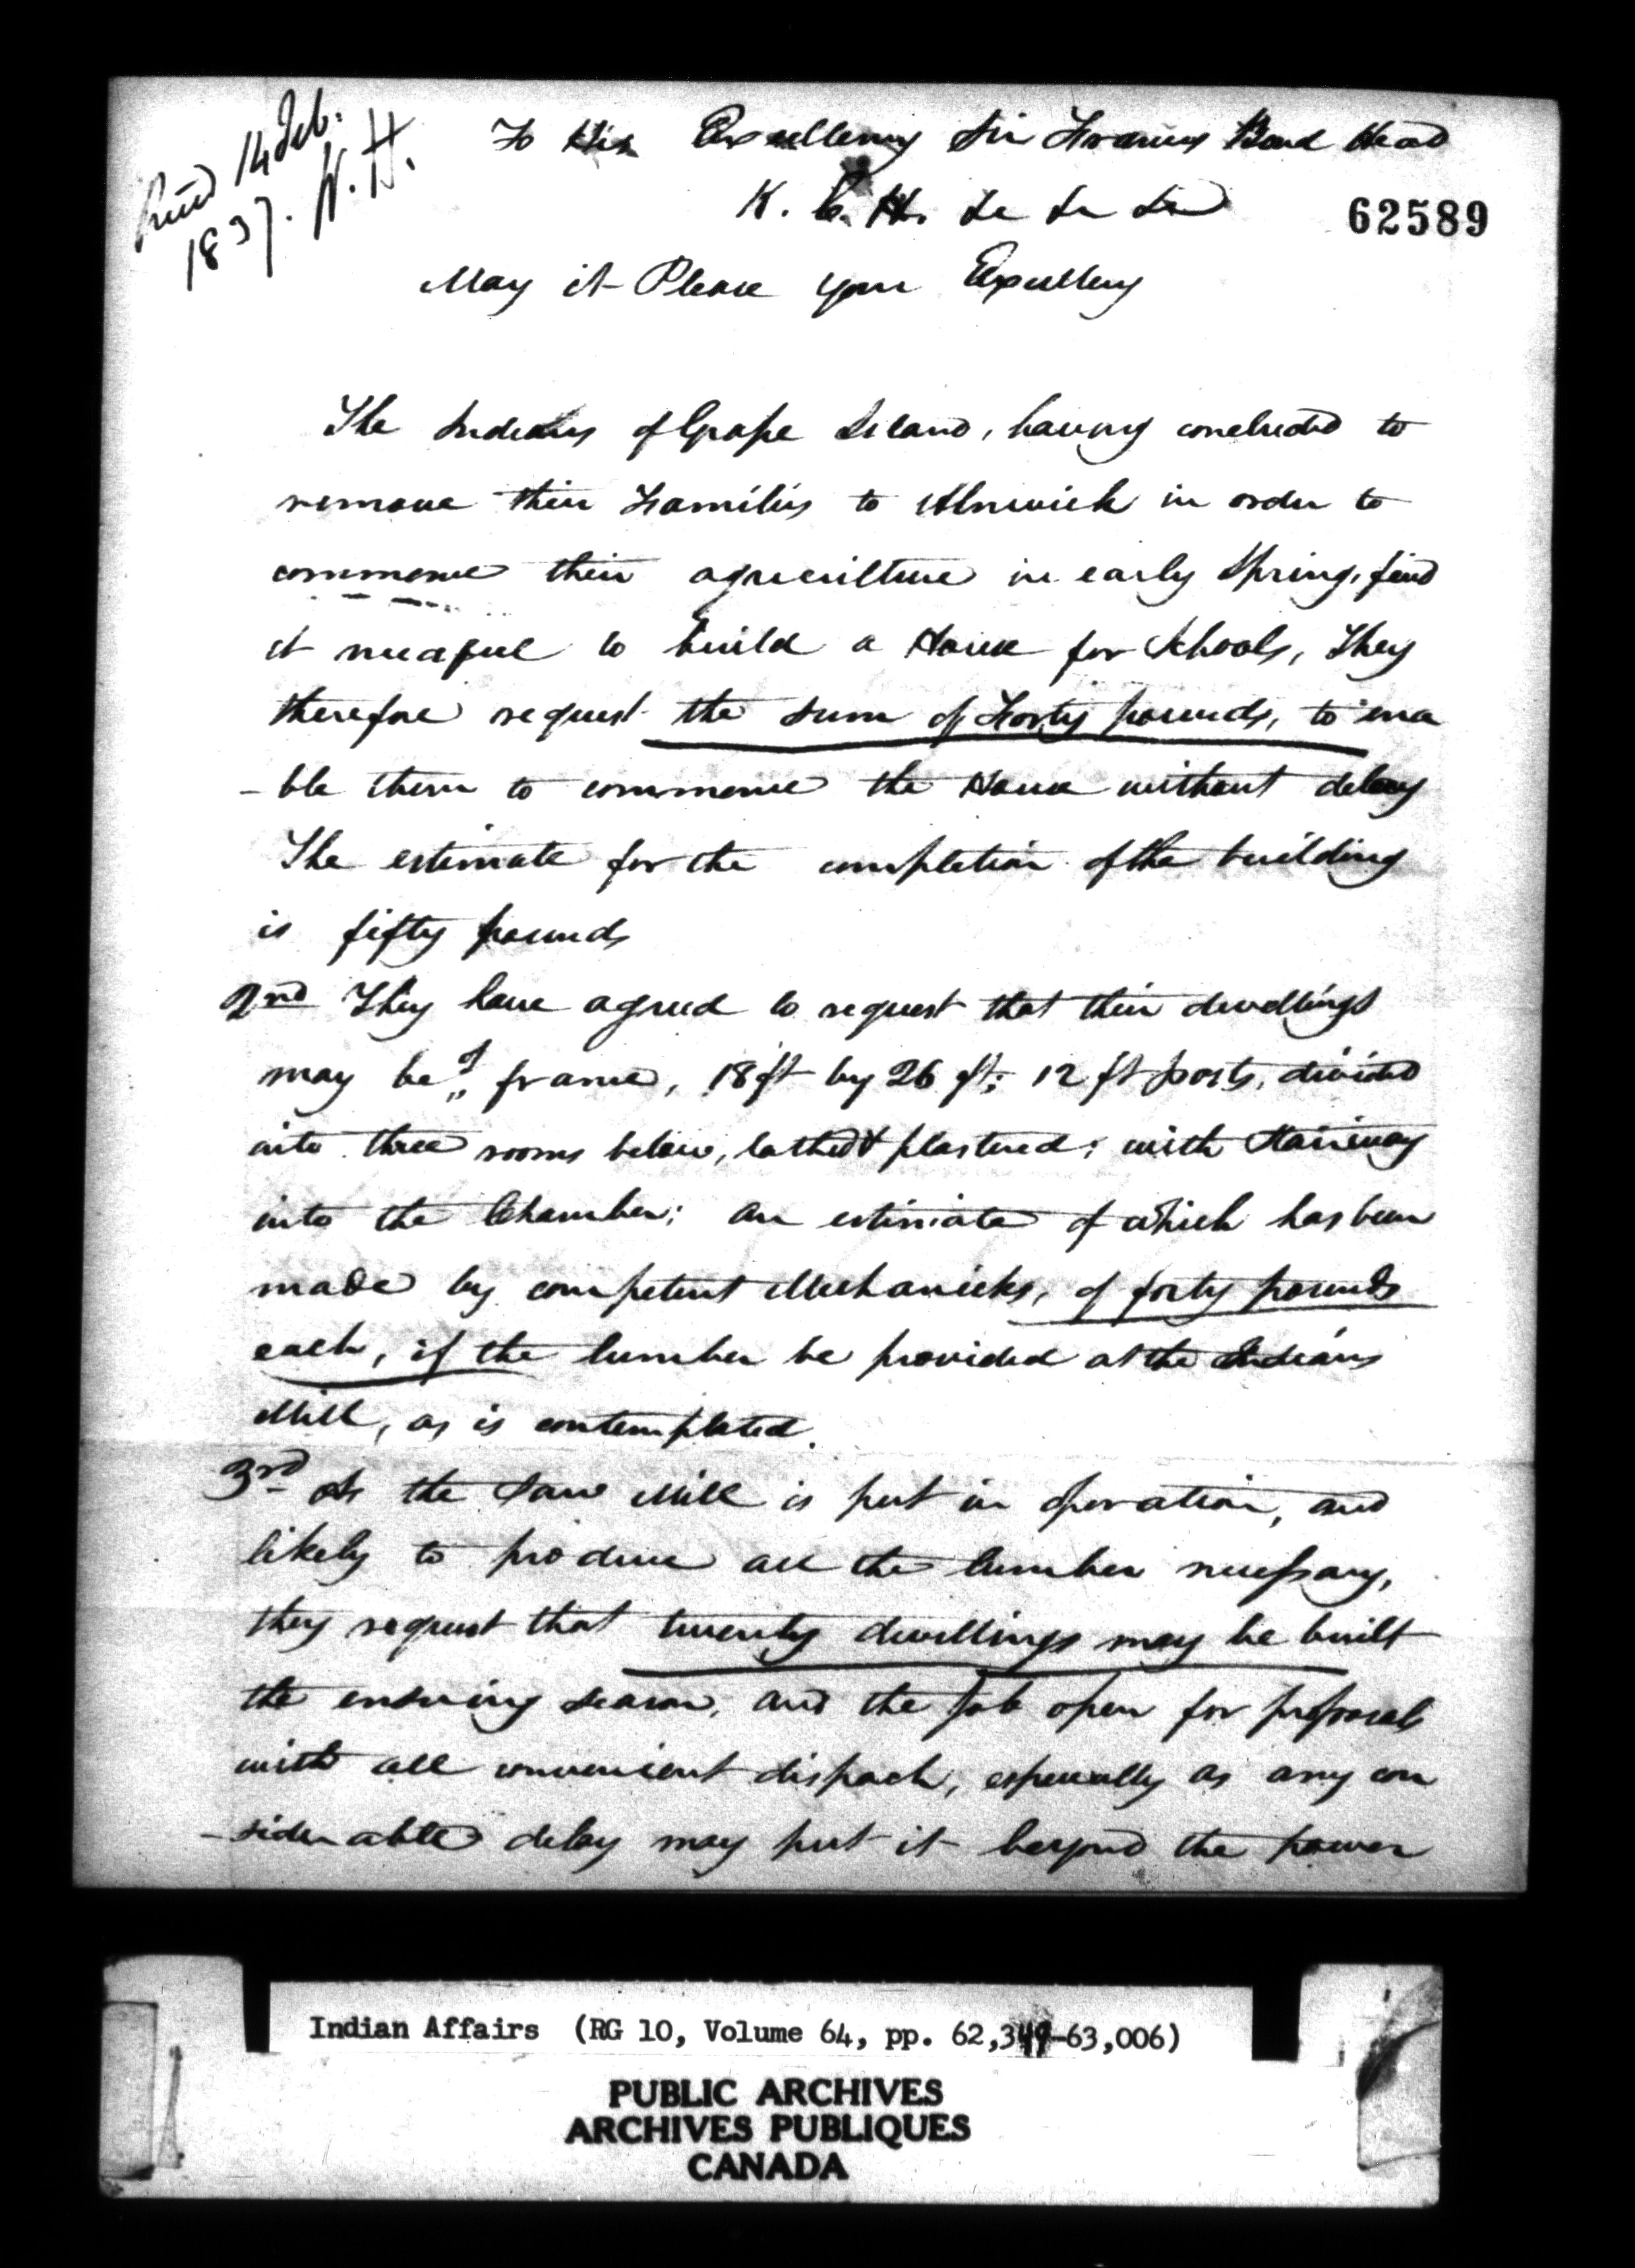 Recd 14 Feb.
1837. W. H.
To His Excellency Sir Francis Bond Head
K. C. H. &c &c &c
62589
May it Please your Excellency
The Indians of Grape Island, having concluded to
remove their Families to Alnwick in order to
commence their agriculture in early Spring, find
it needful to build a House for Schools, They
therefore request the sum of Forty pounds, to ena
-ble them to commence the House without delay
The estimate for the completion of the building
is fifty pounds
2nd They have agreed to request that their dwellings
may be of frame, 18 ft by 26 ft; 12 ft posts, divided
into three rooms below, lathed & plastered; with stairway
into the Chamber; an estimate of which has been
made by competent Mechanicks, of forty pounds
each, if the lumber be provided at the Indians
Mill, as is contemplated.
3rd As the Saw Mill is put in operation, and
likely to produce all the lumber necessary,
they request that twenty dwellings may be built
the ensuing season, and the job open for proposals
with all convenient dispach, especially as any con
-siderable delay may put it beyond the power
Indian Affairs (RG 10, Volume 64, pp. 62,349-63,006)
PUBLIC ARCHIVES
ARCHIVES PUBLIQUES
CANADA